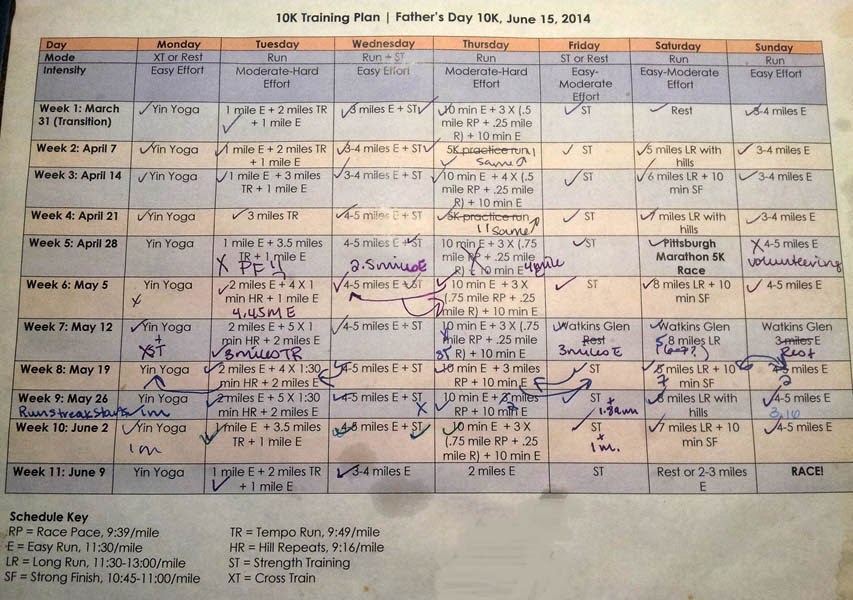 10K Training Plan | Father's Day 10K, June 15, 2014
Day Monday Tuesday Wednesday Thursday Friday Saturday Sunday
Mode XT or Rest Run Run + ST Run ST or Rest Run Run
Intensity Easy Effort Moderate-Hard Easy Effort Moderate-Hard Easy- Easy-Moderate Easy Effort
Effort Effort Moderate Effort
Effort
Week 1: March Yin Yoga 1 mile E + 2 miles TR 3 miles E + ST 10 min E + 3 X (.5 ST Rest 3-4 miles E
31 (Transition) + 1 mile E mile RP + .25 mile
R) + 10 min E
Week 2: April 7 Yin Yoga 1 mile E + 2 miles TR 3-4 miles E + ST 5K practice run ST 5 miles LR with 3-4 miles E
+ 1 mile E same hills
Week 3: April 14 Yin Yoga 1 mile E + 3 miles 3-4 miles E + ST 10 min E + 4 X (.5 ST 6 miles LR + 10 3-4 miles E
TR + 1 mile E mile RP + .25 mile min SF
R) + 10 min E
Week 4: April 21 Yin Yoga 3 miles TR 4-5 miles E + ST 5K practice run ST 7 miles LR with 3-4 miles E
same hills
Week 5: April 28 Yin Yoga 1 mile E + 3.5 miles 4-5 miles E + ST 10 min E + 3 X (.75 ST Pittsburgh X 4-5 miles E
TR + 1 mile E mile RP + .25 mile Marathon 5K volunteering
X PF!! 2.5 miles E R) + 10 min E 4 mile Race
Week 6: May 5 Yin Yoga 2 miles E + 4 X 1 4-5 miles E + ST 10 min E + 3 X ST 8 miles LR + 10 4-5 miles E
X min HR + 1 mile E (.75 mile RP + .25 min SF
4.45m E mile R) + 10 min E
Week 7: May 12 Yin Yoga 2 miles E + 5 X 1 4-5 miles E + ST 10 min E + 3 X (.75 Watkins Glen Watkins Glen Watkins Glen
+ min HR + 2 miles E mile RP + .25 mile Rest 8 miles LR 3 miles E
XST 3 miles TR R) + 10 min E 3 miles E Rest
Week 8: May 19 Yin Yoga 2 miles E + 4 X 1:30 4-5 miles E + ST 10 min E + 3 miles ST miles LR + 10 4-5 miles E
min HR + 2 miles E RP + 10 min E 7 min SF 2
Week 9: May 26 Yin Yoga 2 miles E + 5 X 1:30 4-5 miles E + ST 10 min E + 3 miles ST 8 miles LR with 4-5 miles E
Runstreak starts 1m min HR + 2 miles E X RP + 10 min E + hills 3.10
Week 10: June 2 Yin Yoga 1 mile E + 3.5 miles 4-5 miles E + ST 10 min E + 3 X ST 7 miles LR + 10 4-5 miles E
1m TR + 1 mile E (.75 mile RP + .25 + min SF
mile R) + 10 min E 1m.
Week 11: June 9 Yin Yoga 1 mile E + 2 miles TR 3-4 miles E 2 miles E ST Rest or 2-3 miles RACE!
+ 1 mile E E
Schedule Key
RP = Race Pace, 9:39/mile TR = Tempo Run, 9:49/mile
E = Easy Run, 11:30/mile HR = Hill Repeats, 9:16/mile
LR = Long Run, 11:30-13:00/mile ST = Strength Training
SF = Strong Finish, 10:45-11:00/mile XT = Cross Train